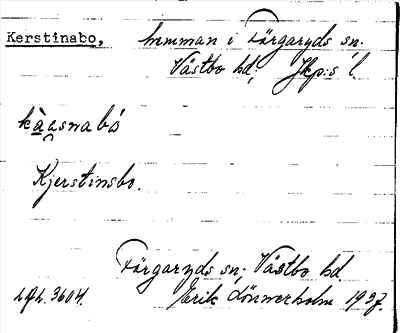 Kerstinabo, hemman i Färgaryds sn.
Västbo hd; Jkp:s l.
Kjerstinsbo.
Färgaryds sn; Västbo hd.
Erik Lönnerholm 1937.